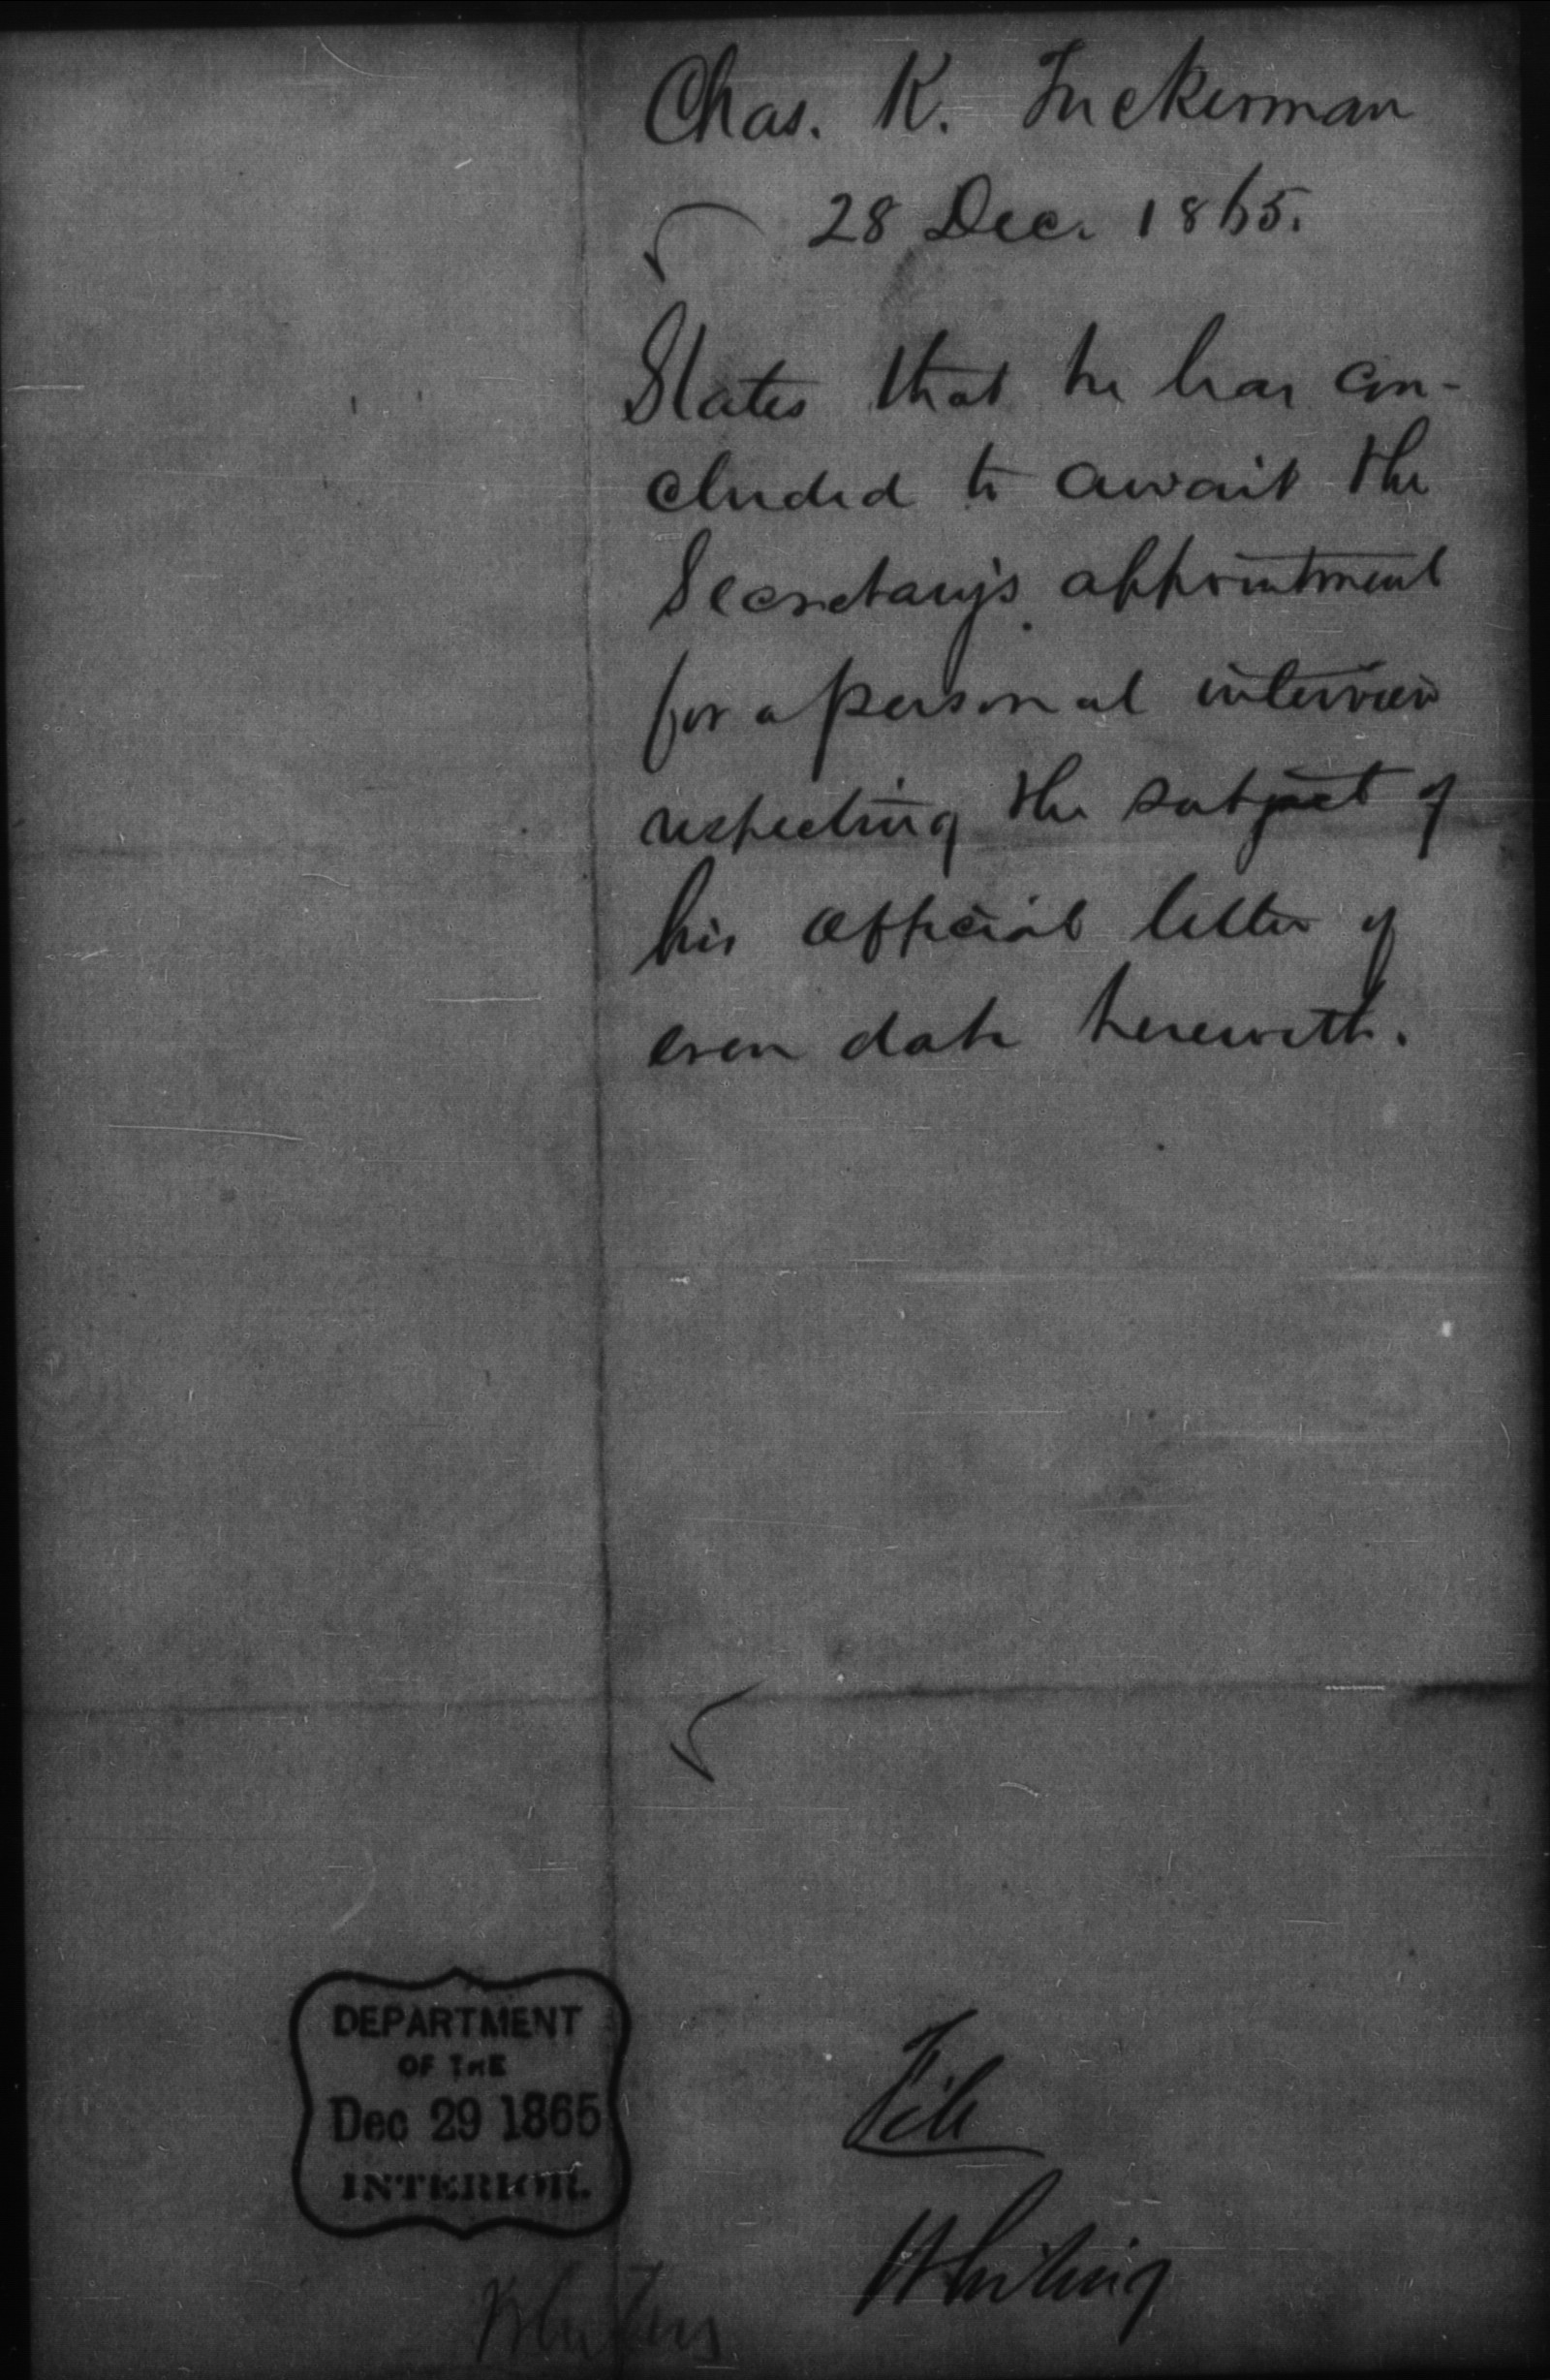 Chas. K. Tuckerman
28 Dec. 1865.
States that he has con-
cluded to await the
Secretary's appointment
for a personal interview
respecting the subject of
his official letter of
even date herewith.
DEPARTMENT
OF THE
Dec 29 1865
INTERIOR.
File
Whiting